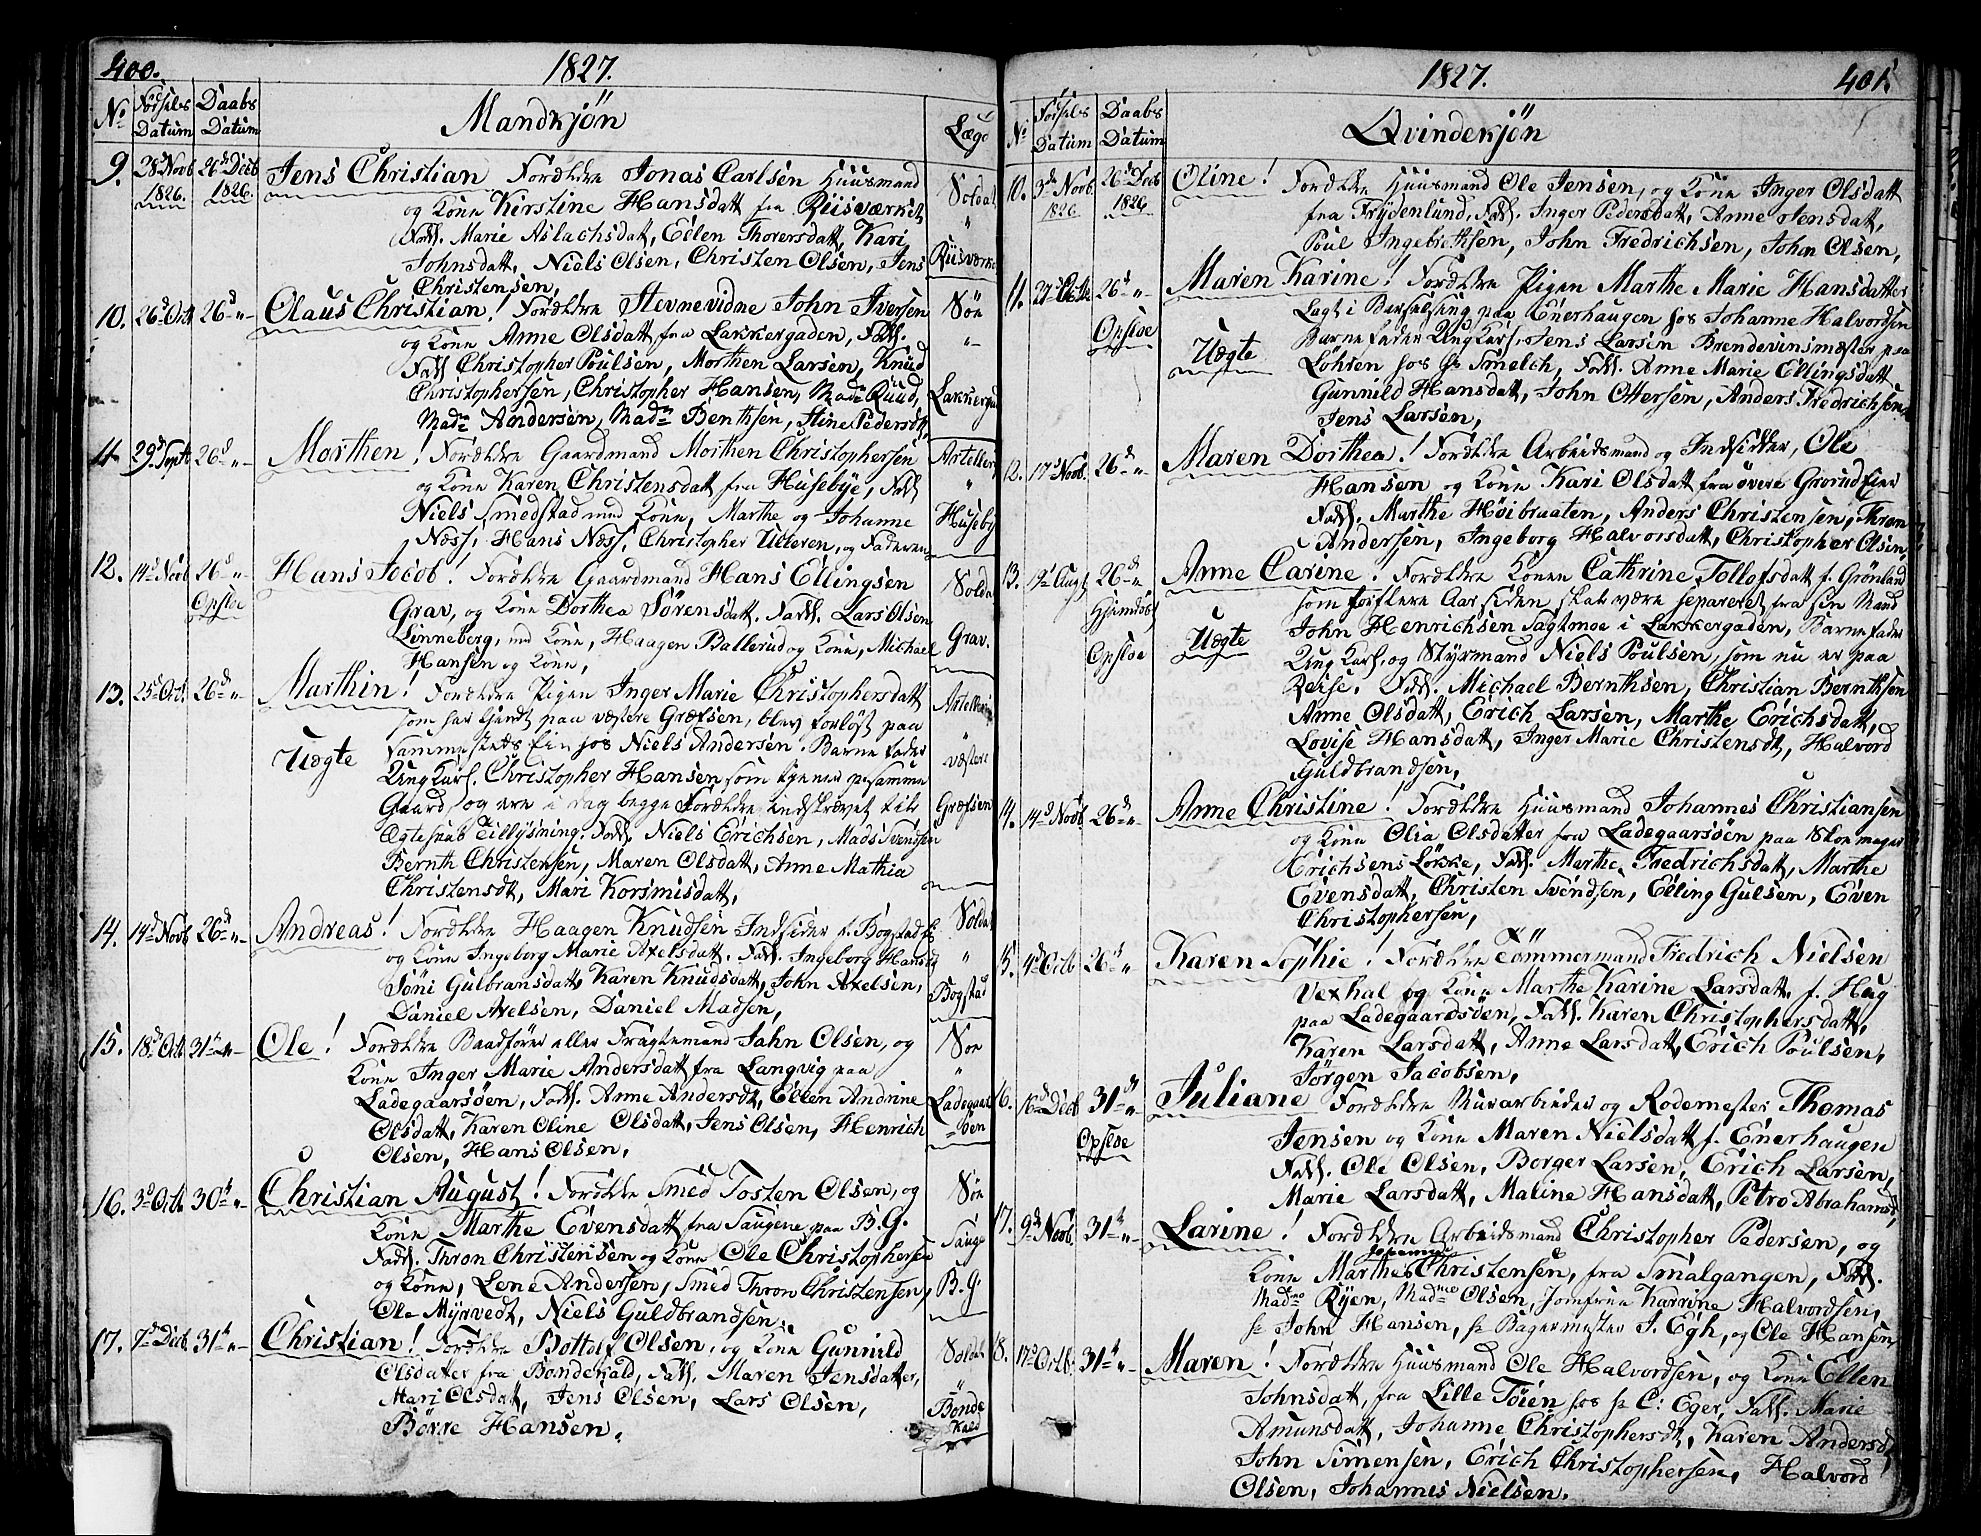 400.
1827.
No Födsels Datum Daabs Datum Mandkjön Lægd
9. 28d Novb 1826. 26d Decb 1826. Jens Christian Forældre Jonas Carlsen Huusmand Soldat
og Kone Kirstine Hansdatt fra Riisværket, "
Fadd. Marie Aslachsdatt, Ellen Thorersdatt, Kari Riisværket
Johnsdatt, Niels Olsen, Christen Olsen, Jens
Christensen,
10. 26d Octb 26d "- Olaus Christian! Forældre Stevnevidne John Iversen Söe
og Kone Anne Olsdatt fra Lakkergaden, Fadd. "-
Fadd Christopher Poulsen, Morthen Larsen, Knud
Christophersen, Christopher Hansen, Made Ruud, Lakkergad
Madm Andersen, Madm Benthsen, Stine Pedersdt,
11. 29d Septb 26d "- Morthen! Forældre Gaardmand Morthen Christophersen Artelleri
og Kone Karen Christensdatt fra Husebye, Fadd "
Niels Smedstad med Kone, Marthe og Johanne Huseby
Næss, Hans Næss, Christopher Ulteren, og Faderen
12. 14d Novb 26d "- Opsloe Hans Jocob! Forældre Gaardmand Hans Ellingsen Soldat
Grav, og Kone Dorthea Sörensdatt. Fadd. Lars Olsen
Linneberg, med Kone, Haagen Ballerud og Kone, Michael Grav.
Hansen og Kone,
13. 25d Octb 26d "- Marthin! Forældre Pigen Inger Marie Christophersdatt Artelleri
som har tjendt paa væstere Græfsen, blev forlöst paa "
Uægte sammesteds Eie hos Niels Andersen. Barnefader væstere
Ung Karl. Christopher Hansen som tjener paa samme
Gaard, og ere i dag begge Forældre indskrevet til Græfsen
Ægteskab Tillysning. Fadd. Niels Erichsen, Mads Svendsen
Bernth Christensen, Maren Olsdatt, Anne Mathia
Christensdt, Mari Korsmisdatt,
14. 14d Novb 26d "- Andreas! Forældre Haagen Knudsen Indsider v. Bogstad Soldat
og Kone Ingeborg Marie Axelsdatt. Fadd. Ingeborg Hansdt "
Söni Gulbransdatt, Karen Knudsdatt, John Axelsen, Bogstad
Daniel Axelsen, Daniel Madsen,
15. 18d Octb 31te "- Ole! Forældre Baadförer eller Fragtemand Jahn Olsen, og Söe
Kone Inger Marie Andersdatt fra Langvig paa "
Ladegaarsöen, Fadd. Anne Andersdt, Ellen Andrine Ladegaars
Olsdatt, Karen Oline Olsdatt, Jens Olsen, Henrich =öen
Olsen, Hans Olsen,
16. 3d Octb 30te "- Christian August! Forældre Smed Tosten Olsen, og Söe
Kone Marthe Evensdatt fra Saugene paa B.G. Sauge
Fadd. Thron Christensen og Kone Ole Christophersen
og Kone, Lene Andersen, Smed Thron Christensen, B.G
Ole Myrvedt, Niels Guldbrandsen.
17. 7d Decb 31te "- Christian! Forældre Bottolf Olsen, og Kone Gunnild Soldat
Olsdatter fra Bondekald, Fadd. Maren Jensdatter, "
Mari Olsdatt, Jens Olsen, Lars Olsen, Bonde
Börre Hansen. Kald
1827.
401.
No Födsels Datum Daabs Datum Qvindekjön
10. 3d Novb 1826 26d Decb 1826 Oline! Forældre Huusmand Ole Jensen, og Kone Inger Olsdatt
fra Frydenlund, Fadd. Inger Pedersdatt, Anne Jensdatt,
Poul Ingebrethsen, John Fredrichsen, John Olsen,
11. 26d "- Opsloe Maren Karine! Forældre Pigen Marthe Marie Hansdatter
Lagt i Barselseng paa Enerhaugen hos Johanne Halvordsen
Uægte Barnefader Ung Karl. Jens Larsen Brendevinsmæster paa
Lohren hos Hr Smelch, Fadd. Anne Marie Ellingsdatt
Gunnild Hansdatt, John Ottersen, Anders Fredrichsen,
Jens Larsen,
12. 17d Novb. 26d " Maren Dorthea! Forældre Arbeidsmand og Indsidder, Ole
Hansen og Kone Kari Olsdatt fra övere Grorud Eier
Fadd. Marthe Höibraaten, Anders Christensen, Thron
Andersen, Ingeborg Halvorsdatt, Christopher Olsen,
13. 19d Augt 26d "- Hjemdöbt Opsloe Anne Carine! Forældre Konen Cathrine Tollofsdatt f. Grönland
som for flere Aar siden skal være separeret fra sin Mand
Uægte John Henrichsen Sagtmoe i Lakkergaden, Barnefader
Ung Karl, og Styrmand Niels Poulsen, som nu er paa
Reise. Fadd. Michael Bernthsen, Christian Bernthsen
Anne Olsdatt, Erich Larsen, Marthe Erichsdatt,
Lovise Hansdatt, Inger Marie Christensdt, Halvord
Guldbrandsen,
14. 14d Novb 26d "- Anne Christine! Forældre Huusmand Johannes Christiansen
og Kone Olia Olsdatter fra Ladegaarsöen paa Skomager
Erichsens Lökke, Fadd. Marthe Fredrichsdatt, Marthe
Evensdatt, Christen Svendsen, Elling Gulsen, Even
Christophersen,
15. 4d Octb 26d " Karen Sophie! Forældre Tömmermand Fredrich Nielsen
Vexhal og Kone Marthe Karine Larsdatt, f. Hug
paa Ladegaardsöen, Fadd. Karen Christophersdatt,
Karen Larsdatt, Anne Larsdatt, Erich Poulsen,
Jörgen Jacobsen,
16. 16d Decb 31te "- Opsloe Juliane Forældre Murarbeider og Rodemester Thomas
Jensen og Kone Maren Nielsdatt f. Enerhaugen
Fadd. Ole Olsen, Borger Larsen, Erich Larsen,
Marie Larsdatt, Maline Hansdatt, Petro Abrahamsd,
17. 9d Novb 31te "- Larine! Forældre Arbeidsmand Christopher Pedersen, og
Kone Marthe Johanne Christensen, fra Smalgangen, Fadd.
Madme Ryen, Madme Olsen, Jomfrue Karrine Halvordsen,
Hr John Hansen, Hr Bagermester J. Egh, og Ole Hansen,
18. 17d Octb. 31te "- Maren! Forældre Huusmand Ole Halvordsen, og Kone Ellen
Johnsdatt, fra Lille Töien hos Hr C: Eger, Fadd. Marie
Amunsdatt, Johanne Christophersdt, Karen Andersdt,
John Simensen, Erich Christophersen, Halvord
Olsen, Johannes Nielsen.